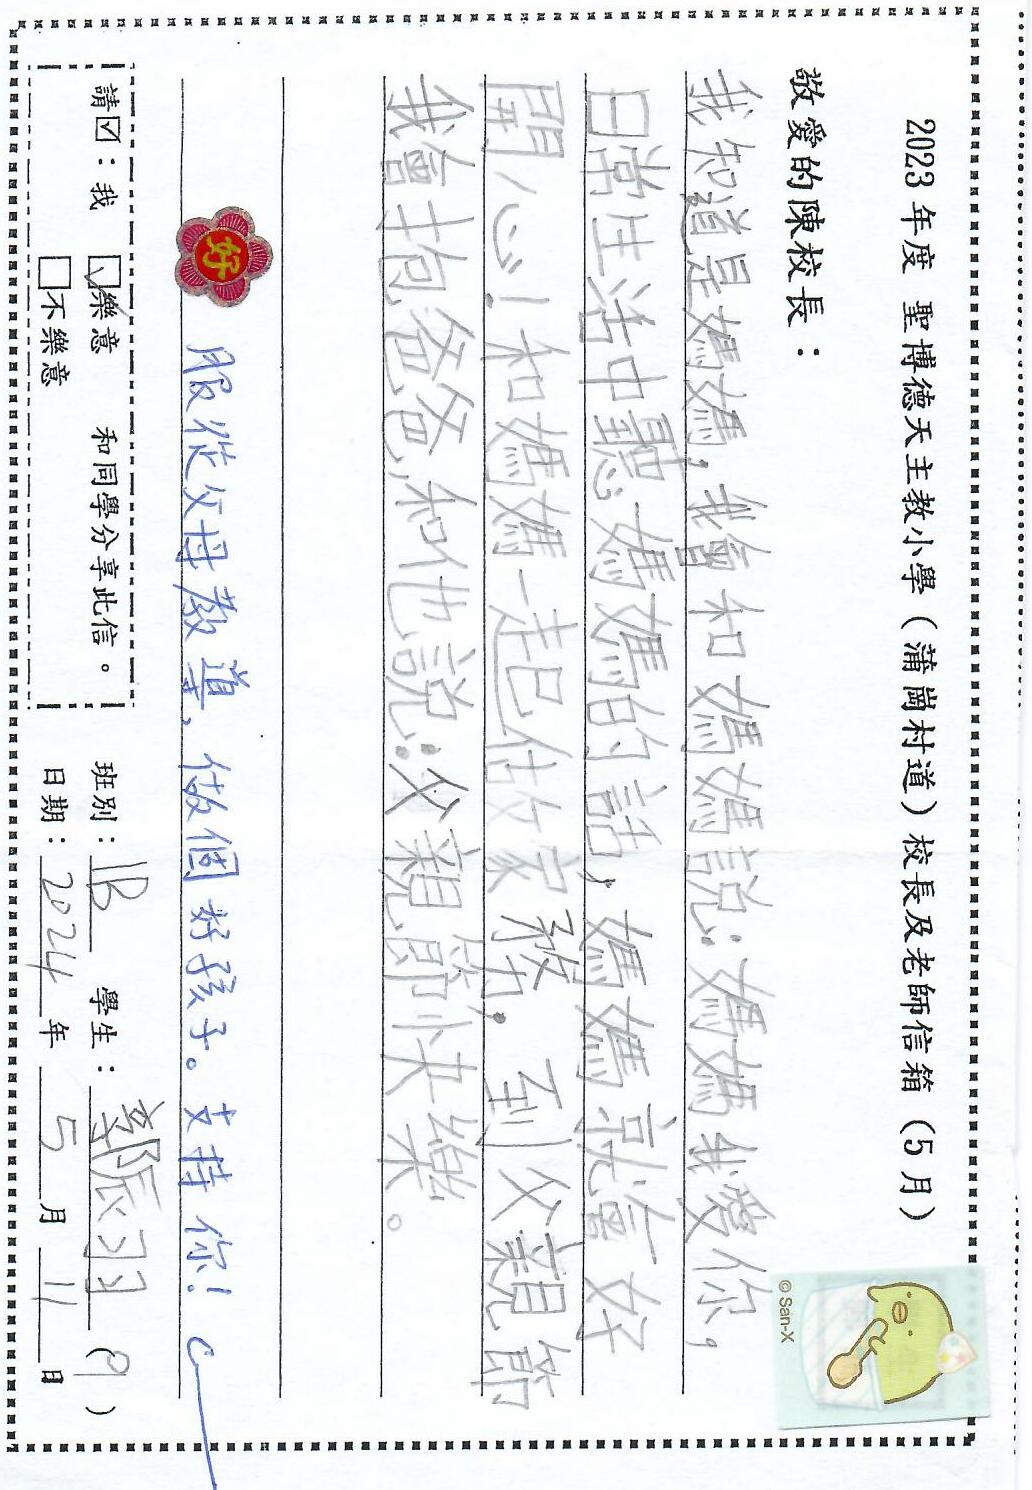 2023年度 聖博德天主教小學（蒲崗村道）校長及老師信箱（5月）
敬愛的陳校長：
© San-X
我知道是媽媽，我會和媽媽說：媽媽我愛你，
日常生活中聽媽媽的話，媽媽就會好
開心！和媽媽一起估故家務，到父親節
我會抱爸爸，和他說：父親節快樂。
好
服從父母教導，做個好孩子。支持你！
請☑：我 ☑樂意 和同學分享此信。
□不樂意
班別：1B 學生：鄭辰羽（9）
日期：2024年5月11日